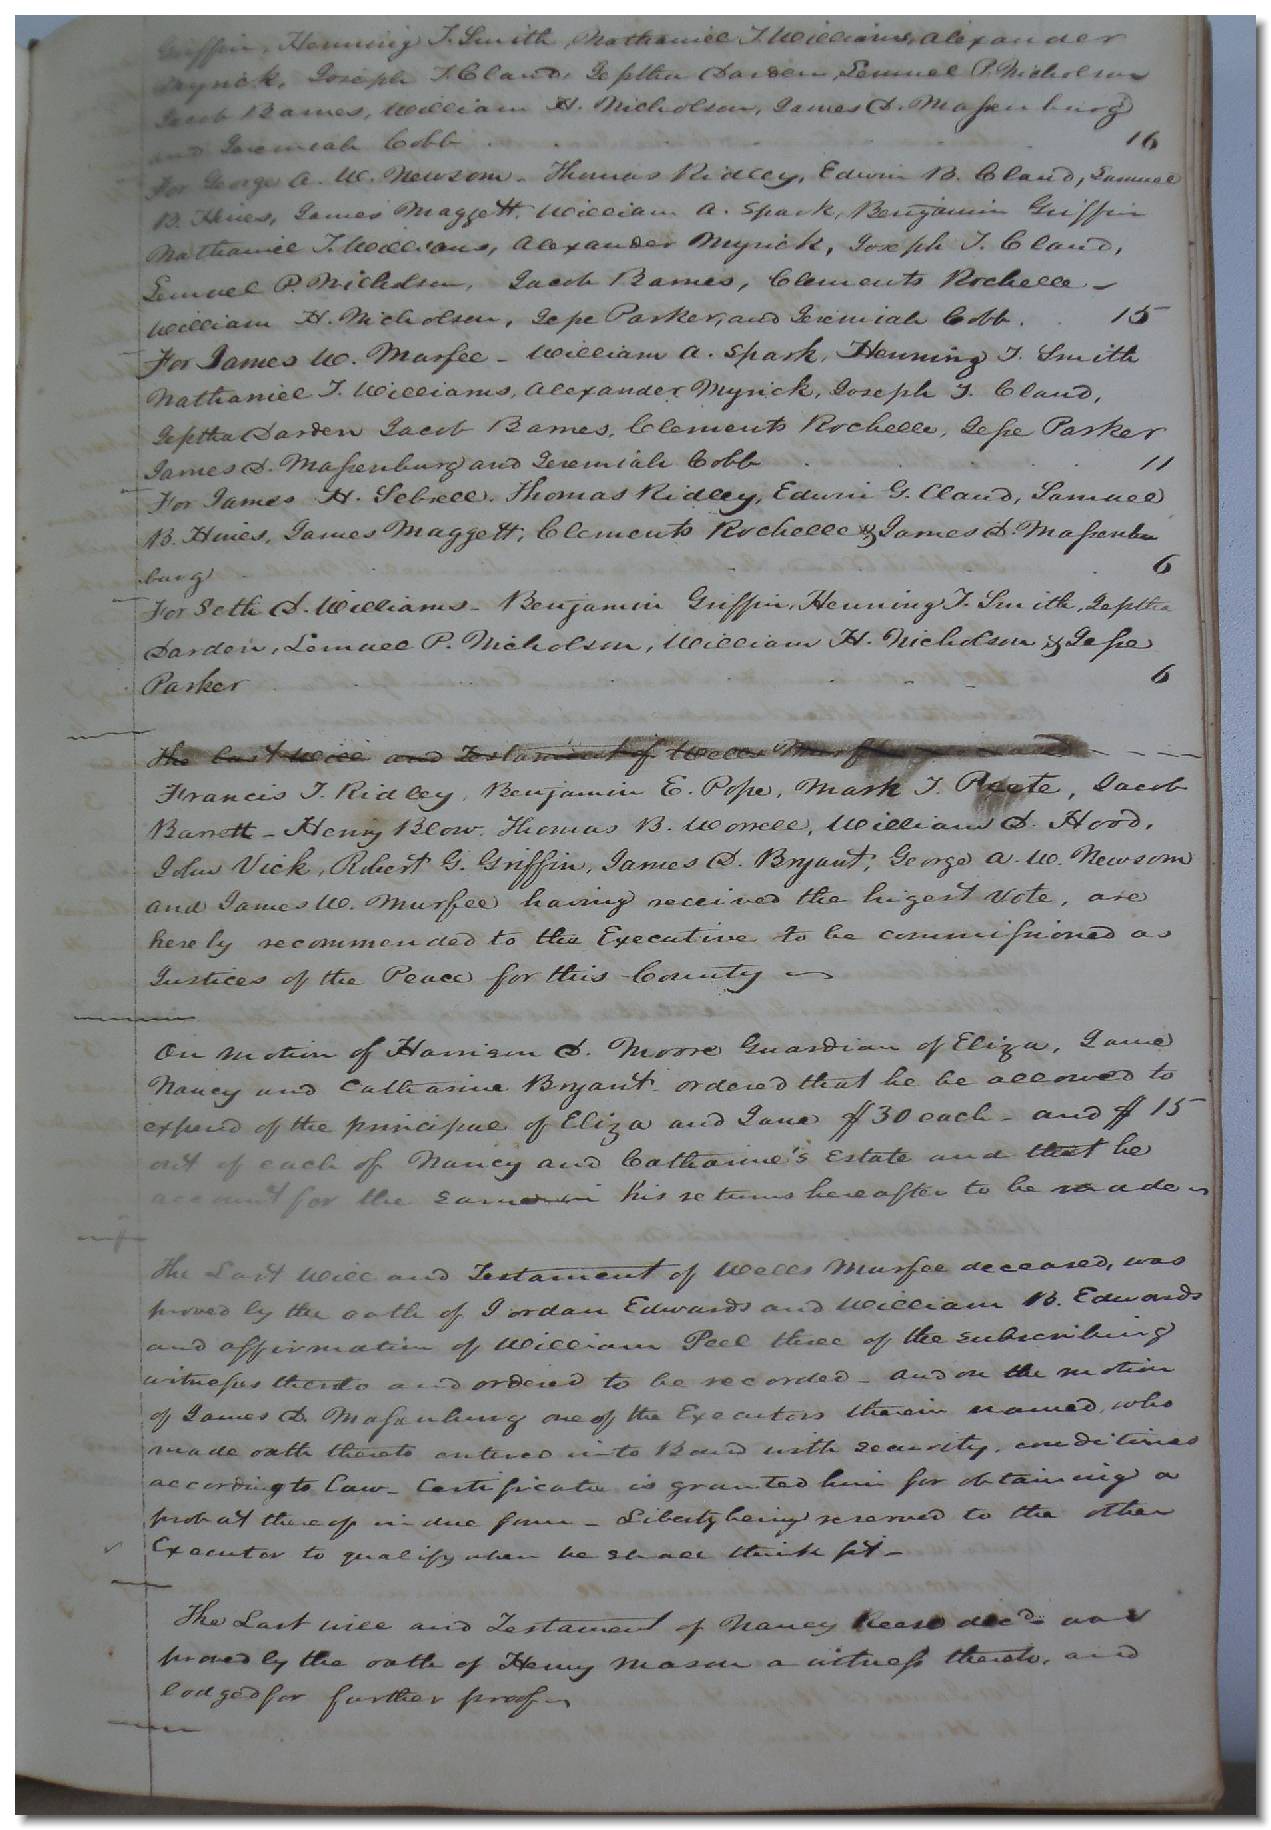 Griffin, Henning T. Smith, Nathaniel T. Williams, Alexander
Myrick, Joseph T. Claud, Jeptha Darden, Lemuel P. Nicholson
Jacob Barnes, William H. Nicholson, James D. Massenburg
and Jeremiah Cobb 16
For George A. W. Newsom - Thomas Ridley, Edwin B. Claud, Samuel
B. Hines, James Maggett, William A. Spark, Benjamin Griffin
Nathaniel T. Williams, Alexander Myrick, Joseph T. Claud,
Lemuel P. Nicholson, Jacob Barnes, Clements Rochelle -
William H. Nicholson, Jesse Parker, and Jeremiah Cobb. 15
For James W. Murfee - William A. Spark, Henning T. Smith
Nathaniel T. Williams, Alexander Myrick, Joseph T. Claud,
Jeptha Darden Jacob Barnes, Clements Rochelle, Jesse Parker
James D. Massenburg and Jeremiah Cobb 11
For James H. Sebrell. Thomas Ridley, Edwin G. Claud, Samuel
B. Hines, James Maggett, Clements Rochelle & James D. Massenbu
burg 6
For Seth D. Williams - Benjamin Griffin, Henning T. Smith, Jeptha
Darden, Lemuel P. Nicholson, William H. Nicholson & Jesse
Parker 6
The Last Will and Testament of Wells Murfee
Francis T. Ridley, Benjamin E. Pope, Mark T. Reete, Jacob
Barrett - Henry Blow. Thomas B. Worrell, William D. Hood,
John Vick, Robert G. Griffin, James D. Bryant, George A. W. Newsom
and James W. Murfee having received the higest Vote, are
herely recommended to the Executive to be commissioned as
Justices of the Peace for this County
On motion of Harrison D. Moore Guardian of Eliza, Jane
Nancy and Catharine Bryant ordered that he be allowed to
expend of the principal of Eliza and Jane $30 each - and $15
out of each of Nancy and Catharine's Estate and that he
account for the same in his returns hereafter to be made
The Last Will and Testament of Wells Murfee deceased, was
proved by the oath of Jordan Edwards and William B. Edwards
and affirmation of William Peel three of the subscribing
witnesses thereto and ordered to be recorded - and on the motion
of James D. Massenburg one of the Executors therein named, who
made oath thereto entered into Bond with security, conditioned
according to Law - Certificate is granted him for obtaining a
probat thereof in due form - Liberty being reserved to the other
Executor to qualify when he shall think fit -
The Last will and Testament of Nancy Reese decd was
proved by the oath of Henry Mason a witness thereto, and
lodged for further proof